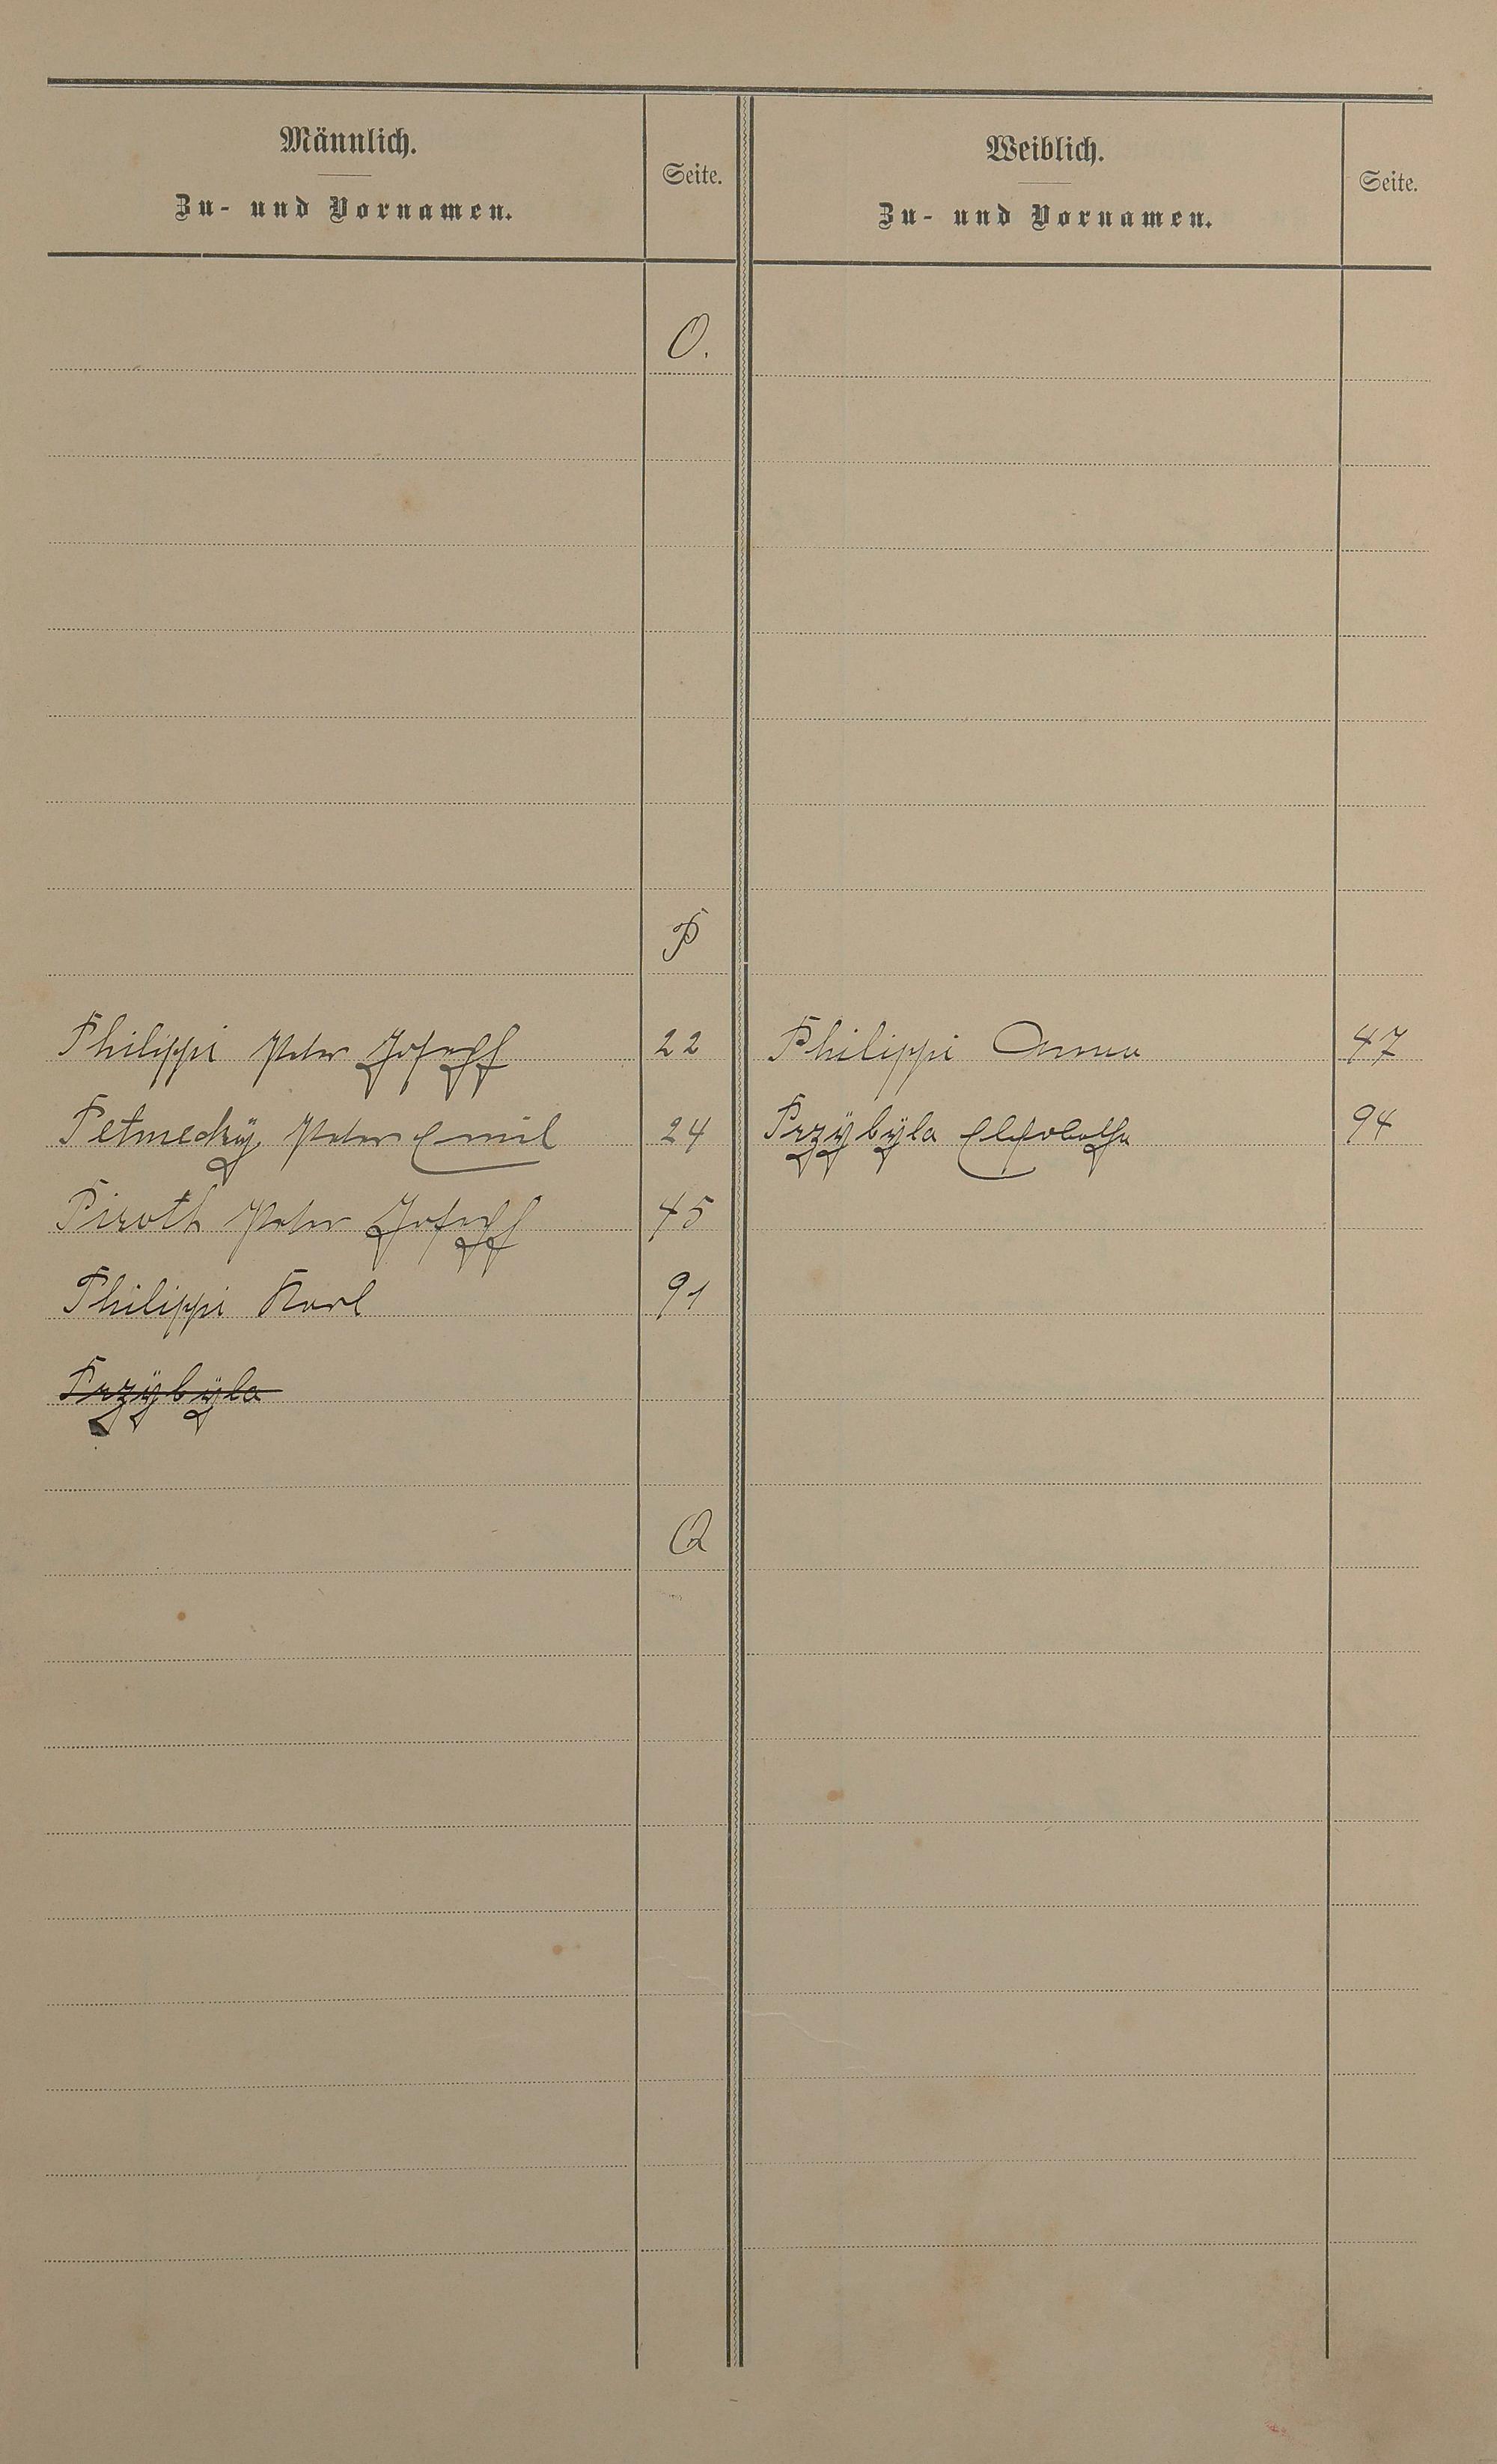 Männlich.
Zu- und Vornamen.
Seite.
Weiblich.
Zu- und Vornamen.
Seite.
O.
P
Philippi Peter Joseph 22 Philippi Anna 47
Petmecky Peter Emil 24 Przÿbÿla Elisabetha 94
Piroth Peter Joseph 45
Philippi Karl 91
Przÿbÿla
Q